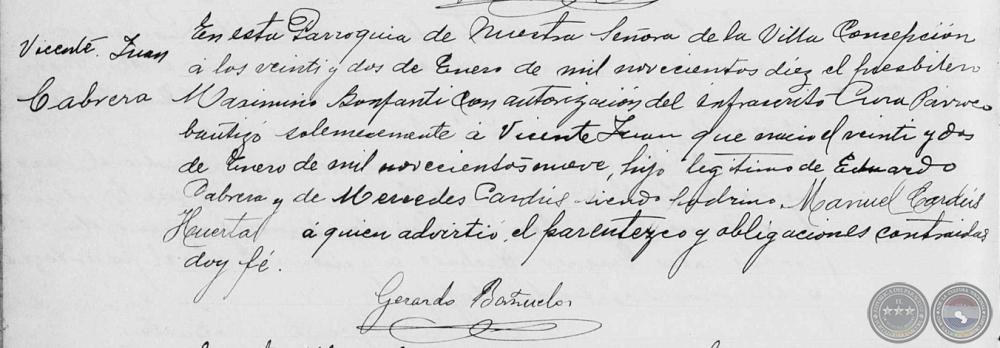 Vicente Juan
Cabrera
En esta Parroquia de Nuestra Señora de la Villa Concepción
á los veinti y dos de Enero de mil novecientos diez el presbitero
Maximino Bonfanti con autorización del infrascrito Cura Párroco
bautizó solemnemente á Vicente Juan que nació el veinti y dos
de Enero de mil novecientos nueve, hijo legítimo de Eduardo
Cabrera y de Mercedes Cardús siendo padrino, Manuel Cardús
Huerta á quien advirtió, el parentezco y obligaciones contraidas
doy fé.
Gerardo Bañuelos